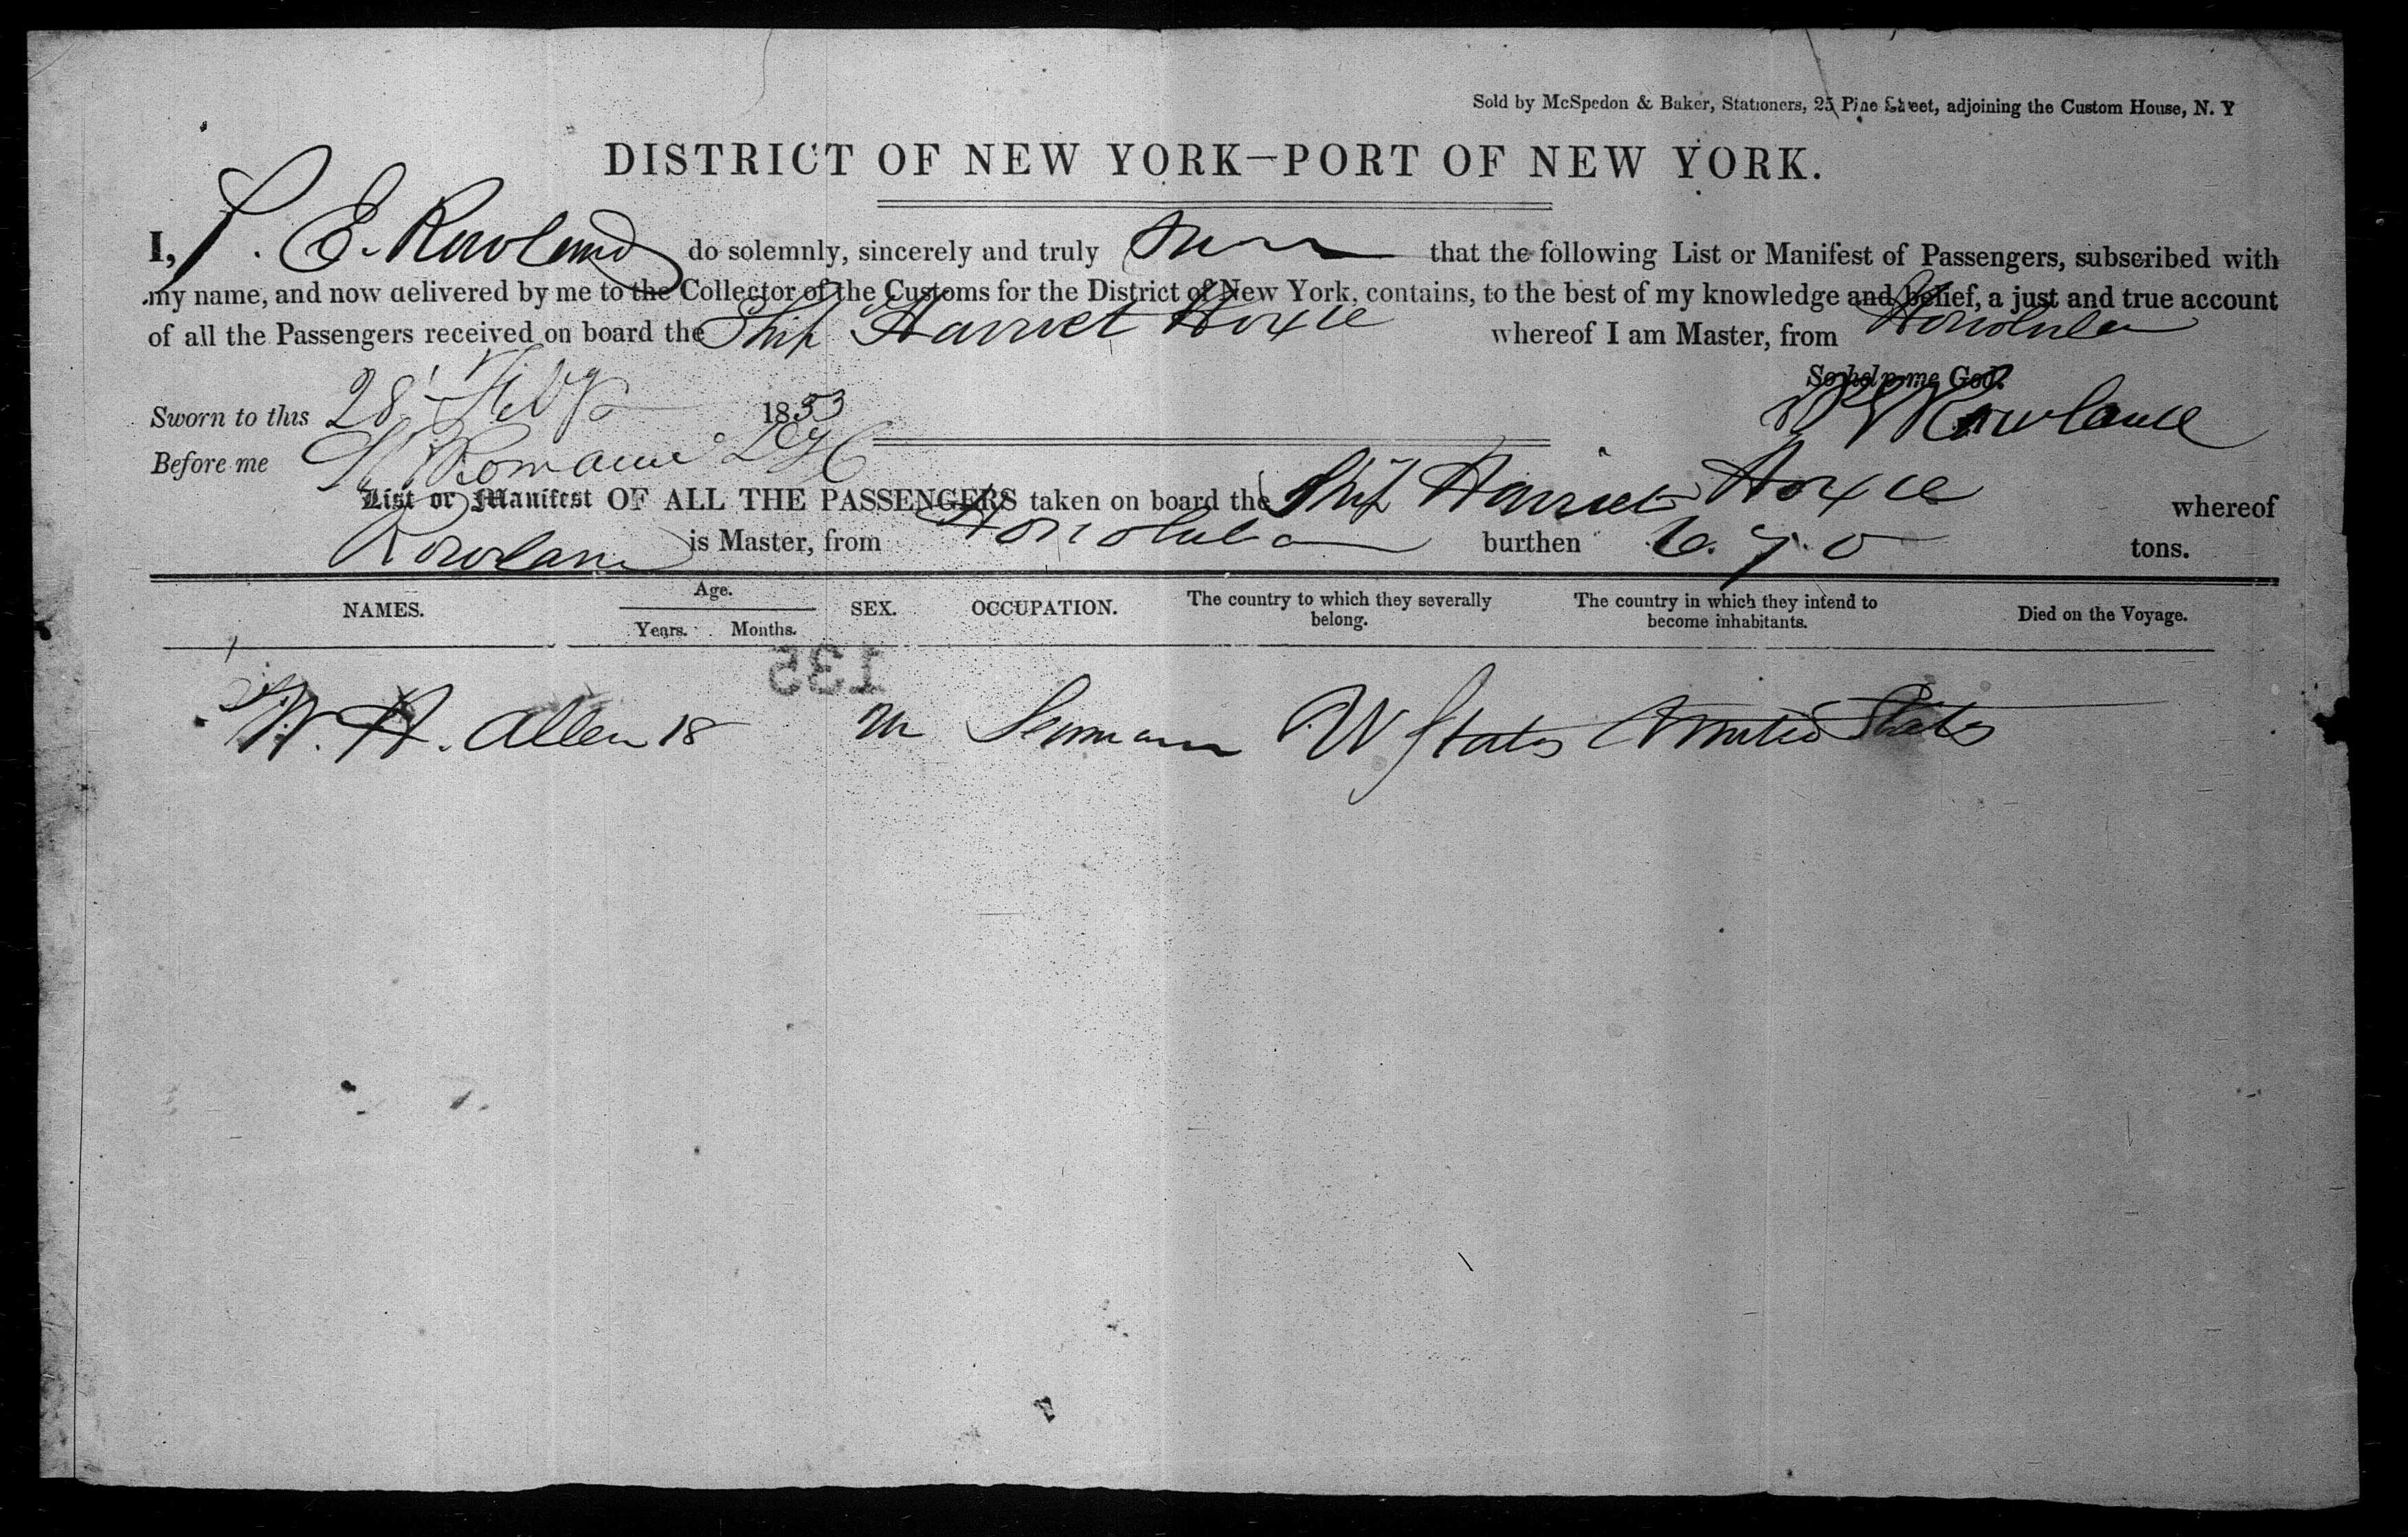 Sold by McSpedon & Baker, Stationers, 25 Pine Street, adjoining the Custom House, N. Y
DISTRICT OF NEW YORK—PORT OF NEW YORK.
I, P. E. Rowland do solemnly, sincerely and truly swear that the following List or Manifest of Passengers, subscribed with
my name, and now delivered by me to the Collector of the Customs for the District of New York, contains, to the best of my knowledge and belief, a just and true account
of all the Passengers received on board the Ship Harriet Hoxie whereof I am Master, from Honolulu
So help me God.
Sworn to this 28 Feby 1853
P E Rowland
Before me Romaine
List or Manifest OF ALL THE PASSENGERS taken on board the Ship Harriet Hoxie whereof
Rowland is Master, from Honolulu burthen 670 tons.
NAMES. Age. Years. Months. SEX. OCCUPATION. The country to which they severally belong. The country in which they intend to become inhabitants. Died on the Voyage.
135
W. H. Allen 18 m Seaman U States United States